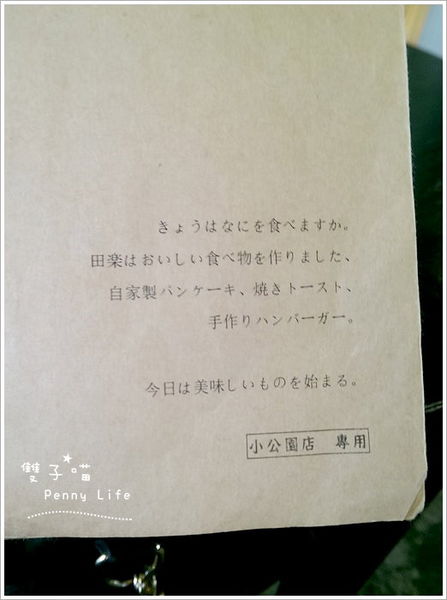 きょうはなにを食べますか。
田楽はおいしい食べ物を作りました、
自家製パンケーキ、焼きトースト、
手作りハンバーガー。
今日は美味しいものを始まる。
小公園店　專用
雙子喵
Penny Life